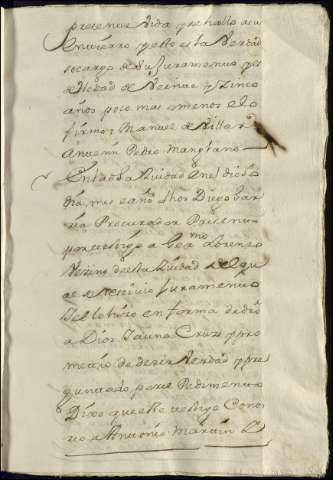 presenzia vida y se hallo a su
entierro y esto es la verdad
so cargo de su juramento y es
de hedad de veinte y zinco
años poco mas o menos e lo
firmo = Manuel de Villar
Antemi Pedro Manzano
En la dha ziudad en el dicho
dia mes e año el sor Diego Gar
zia Procurador Presento
por testigo a Lorenzo
Vezino desta ziudad del q
se rezivio juramento
el lo hizo en forma de dro
a Dios y a una Cruz y pro
metio de dezir verdad y pre
guntado por el Pedimento
Dixo que este testigo Cono
zio a Antonio Martin